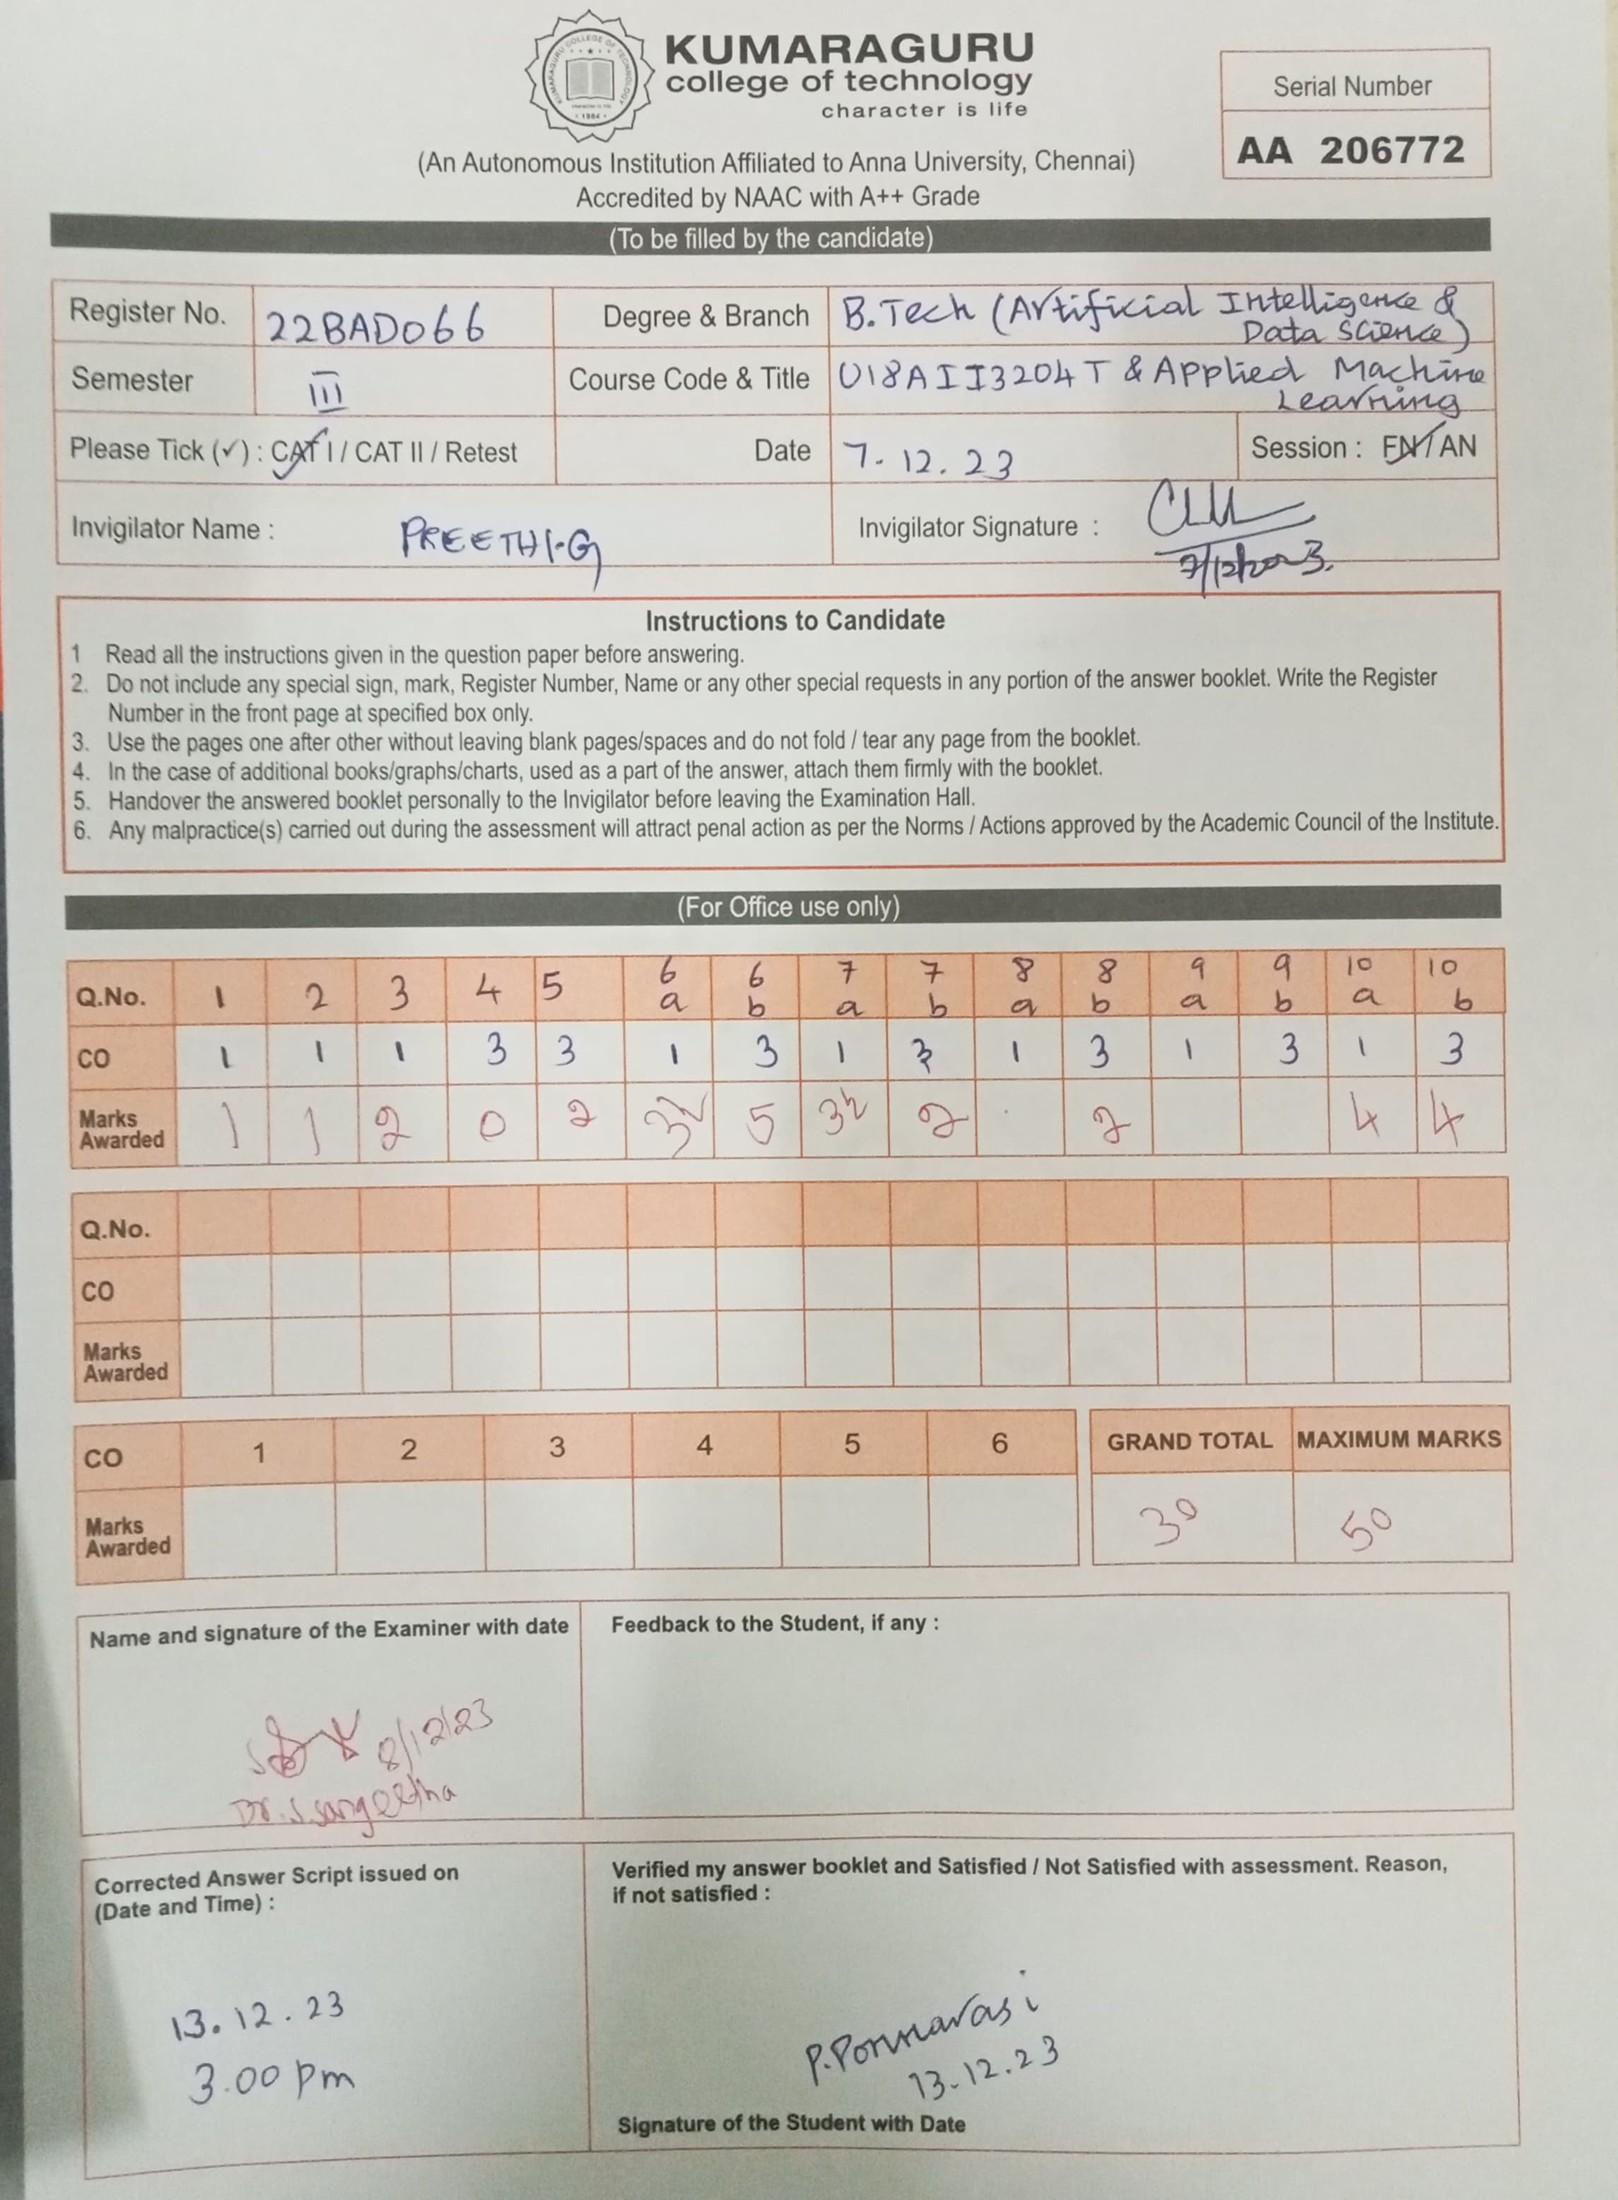 KUMARAGURU
college of technology
character is life
KUMARAGURU COLLEGE OF TECHNOLOGY
1984
Serial Number
AA 206772
(An Autonomous Institution Affiliated to Anna University, Chennai)
Accredited by NAAC with A++ Grade
(To be filled by the candidate)
Register No. 22BAD066 Degree & Branch B.Tech (Artificial Intelligence &
Data Science)
Semester III Course Code & Title U18AII3204T & Applied Machine
Learning
Please Tick (✓) : CAT I / CAT II / Retest Date 7.12.23 Session : FN / AN
Invigilator Name : PREETHI.G Invigilator Signature :
7/12/2023.
Instructions to Candidate
1 Read all the instructions given in the question paper before answering.
2. Do not include any special sign, mark, Register Number, Name or any other special requests in any portion of the answer booklet. Write the Register
Number in the front page at specified box only.
3. Use the pages one after other without leaving blank pages/spaces and do not fold / tear any page from the booklet.
4. In the case of additional books/graphs/charts, used as a part of the answer, attach them firmly with the booklet.
5. Handover the answered booklet personally to the Invigilator before leaving the Examination Hall.
6. Any malpractice(s) carried out during the assessment will attract penal action as per the Norms / Actions approved by the Academic Council of the Institute.
(For Office use only)
Q.No. 1 2 3 4 5 6 a 6 b 7 a 7 b 8 a 8 b 9 a 9 b 10 a 10 b
CO 1 1 1 3 3 1 3 1 3 1 3 1 3 1 3
Marks Awarded 1 1 2 0 2 3½ 5 3½ 2 2 4 4
Q.No.
CO
Marks
Awarded
CO 1 2 3 4 5 6 GRAND TOTAL MAXIMUM MARKS
Marks
Awarded 30 50
Name and signature of the Examiner with date Feedback to the Student, if any :
8/12/23
Dr.S.Sangeetha
Corrected Answer Script issued on
(Date and Time) :
Verified my answer booklet and Satisfied / Not Satisfied with assessment. Reason,
if not satisfied :
13.12.23
3.00 pm
P.Ponnarasi
13.12.23
Signature of the Student with Date